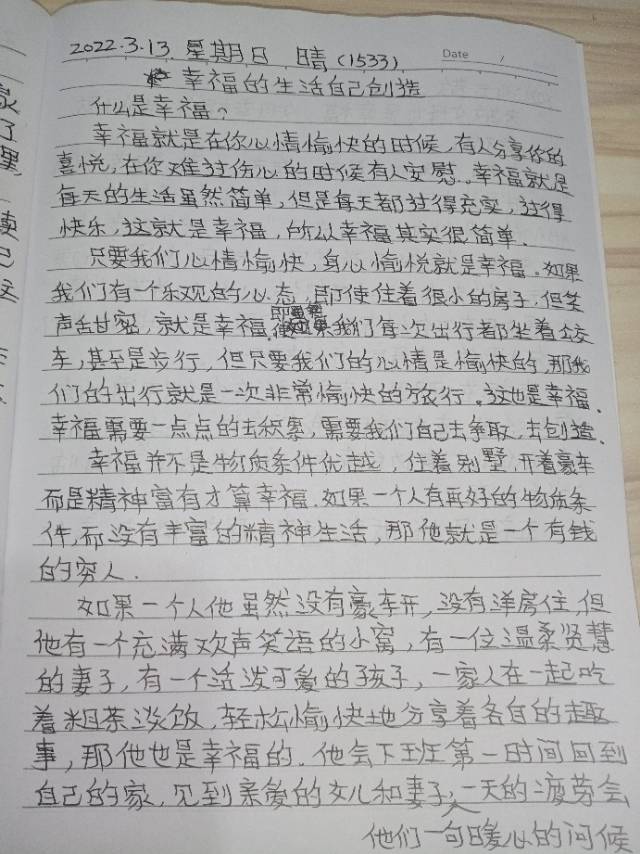 2022.3.13 星期日 晴(1533)
Date /
幸福的生活自己创造
什么是幸福?
幸福就是在你心情愉快的时候,有人分享你的
喜悦,在你难过伤心的时候有人安慰。幸福就是
每天的生活虽然简单,但是每天都过得充实,过得
快乐,这就是幸福,所以幸福其实很简单.
只要我们心情愉快,身心愉悦就是幸福。如果
我们有一个乐观的心态,即使住着很小的房子,但笑
声舌甘密,就是幸福.即使我们每次出行都坐着公交
车,甚至是步行,但只要我们的心情是愉快的,那我
们的出行就是一次非常愉快的旅行。这也是幸福.
幸福需要一点点的去积累,需要我们自己去争取,去创造.
幸福并不是物质条件优越,住着别墅,开着豪车
而是精神富有才算幸福.如果一个人有再好的物质条
件,而没有丰富的精神生活,那他就是一个有钱
的穷人.
如果一个人他虽然没有豪车开,没有洋房住,但
他有一个充满欢声笑语的小窝,有一位温柔贤慧
的妻子,有一个活泼可爱的孩子,一家人在一起吃
着粗茶淡饭,轻松愉快地分享着各自的趣
事,那他也是幸福的.他会下班第一时间回到
自己的家,见到亲爱的女儿和妻子,一天的疲劳会
他们一句暖心的问候